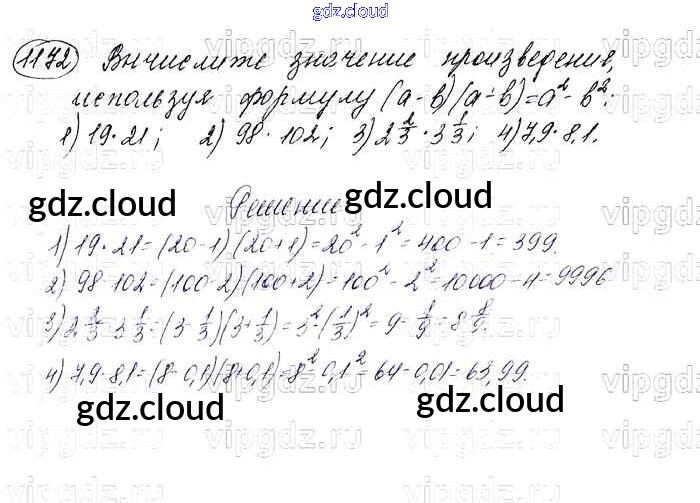 gdz.cloud
1172 Вычислите значение произведения,
используя формулу (a-b)(a+b)=a²-b²:
1) 19·21; 2) 98·102; 3) 2 2/3 · 3 1/3; 4) 7,9·8,1.
gdz.cloud Решение gdz.cloud
1) 19·21=(20-1)(20+1)=20²-1²=400-1=399.
2) 98·102=(100-2)(100+2)=100²-2²=10000-4=9996
3) 2 2/3·3 1/3=(3-1/3)(3+1/3)=3²-(1/3)²=9-1/9=8 8/9.
4) 7,9·8,1=(8-0,1)(8+0,1)=8²-0,1²=64-0,01=63,99.
gdz.cloud gdz.cloud
vipgdz.ru